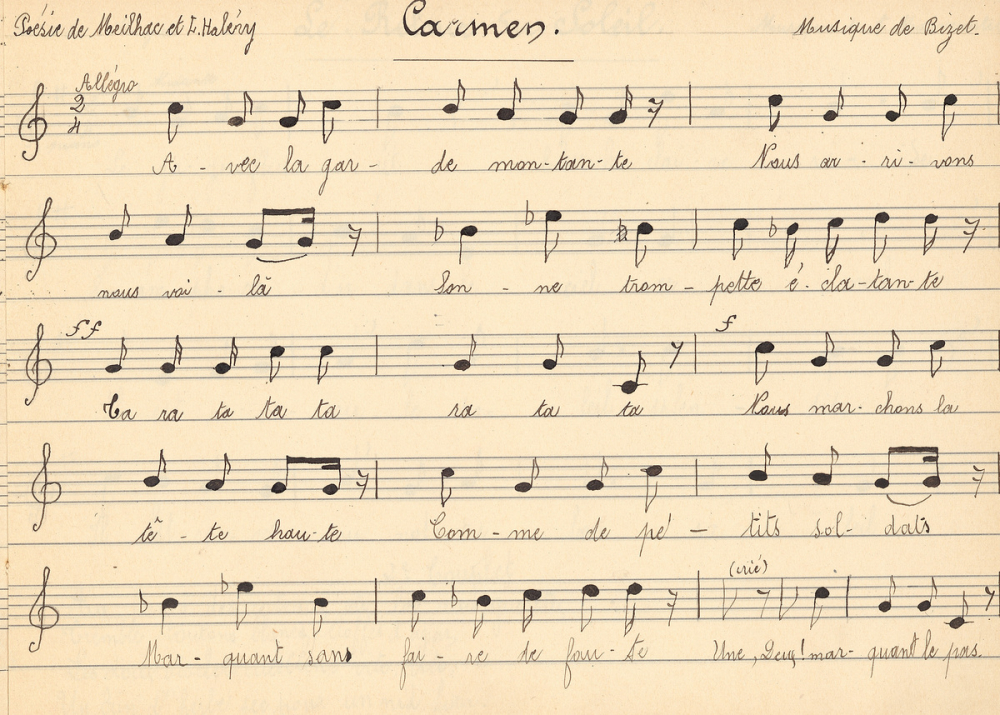 Poésie de Meilhac et L. Halévy Carmen. Musique de Bizet.
Allégro
2
4
A - vec la gar - de mon-tan-te Nous ar - ri - vons
nous voi - là Son - ne trom - pette é - cla-tan-te
ff f
Ta ra ta ta ta ra ta ta Nous mar- chons la
tê - te hau-te Com - me de pe' - tits sol- dats
Mar - quant sans fai - re de fau - te
(crié)
Une, Deux! mar- quant le pas.